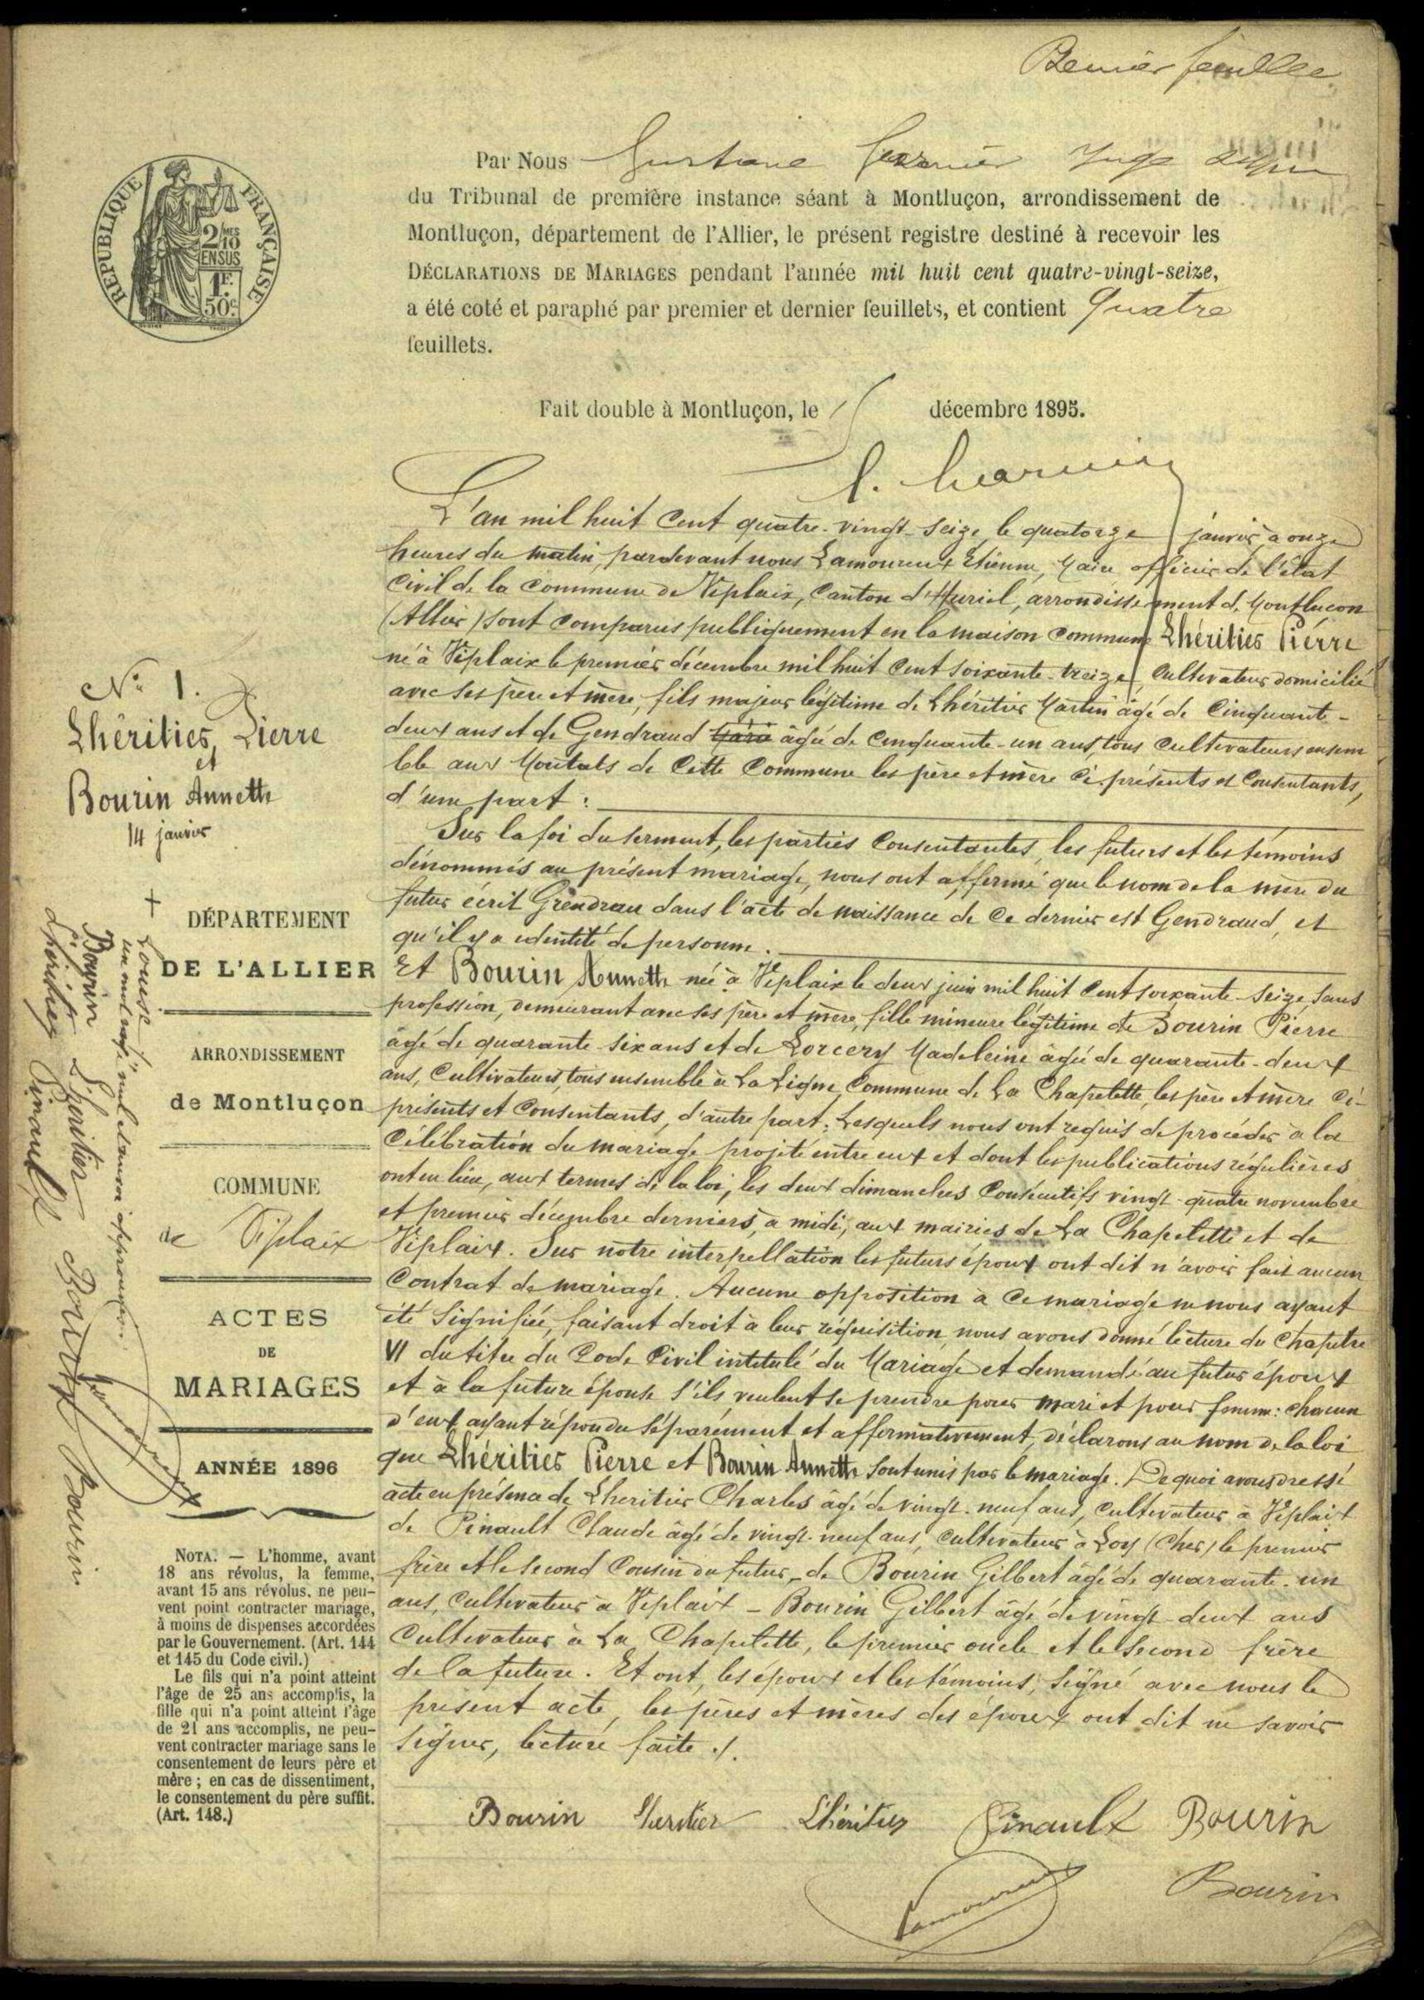 Premier feuillet
RÉPUBLIQUE FRANÇAISE
2/10MES
EN SUS
1F.
50c.
Par Nous Gustave Juge
du Tribunal de première instance séant à Montluçon, arrondissement de
Montluçon, département de l'Allier, le présent registre destiné à recevoir les
DÉCLARATIONS DE MARIAGES pendant l'année mil huit cent quatre-vingt-seize,
a été coté et paraphé par premier et dernier feuillets, et contient Quatre
feuillets.
Fait double à Montluçon, le décembre 1895.
N° 1.
Lhéritier, Pierre
et
Bourin Annette
14 janvier
DÉPARTEMENT
DE L'ALLIER
ARRONDISSEMENT
de Montluçon
COMMUNE
de Viplaix
ACTES
DE
MARIAGES
ANNÉE 1896
NOTA. — L'homme, avant
18 ans révolus, la femme,
avant 15 ans révolus, ne peu-
vent point contracter mariage,
à moins de dispenses accordées
par le Gouvernement. (Art. 144
et 145 du Code civil.)
Le fils qui n'a point atteint
l'âge de 25 ans accomplis, la
fille qui n'a point atteint l'âge
de 21 ans accomplis, ne peu-
vent contracter mariage sans le
consentement de leurs père et
mère ; en cas de dissentiment,
le consentement du père suffit.
(Art. 148.)
+ Louise
un mot rayé nul et savoir approuvé
Bourin Lheritier Bourin Bourin
Lhéritier Pinault
Lamoureux
L'an mil huit cent quatre-vingt-seize, le quatorze janvier à onze
heures du matin, pardevant nous Lamoureux Etienne, Maire officier de l'état
civil de la commune de Viplaix, canton d'Huriel, arrondissement de Montluçon
(Allier) sont comparus publiquement en la maison commune Lhéritier Pierre
né à Viplaix le premier décembre mil huit cent soixante-treize, cultivateur domicilié
avec ses père et mère, fils majeur légitime de Lhéritier Martin âgé de cinquante-
deux ans et de Gendraud âgée de cinquante-un ans, tous cultivateurs ensem
ble aux Moutats de cette commune les père et mère ci-présents et consentants,
d'une part :
Sur la foi du serment, les parties consentantes, les futurs et les témoins
dénommés au présent mariage, nous ont affirmé que le nom de la mère du
futur écrit Grendrau dans l'acte de naissance de ce dernier est Gendraud, et
qu'il y a identité de personne.
Et Bourin Annette née à Viplaix le deux juin mil huit cent soixante-seize, sans
profession, demeurant avec ses père et mère, fille mineure légitime de Bourin Pierre
âgé de quarante-six ans et de Lorcery Madeleine âgée de quarante-deux
ans, cultivateurs, tous ensemble à La Ligne, commune de La Chapelette, les père et mère ci-
présents et consentants, d'autre part ; Lesquels nous ont requis de procéder à la
célébration du mariage projeté entre eux et dont les publications régulières
ont eu lieu, aux termes de la loi, les deux dimanches consécutifs vingt-quatre novembre
et premier décembre derniers, à midi, aux mairies de La Chapelette et de
Viplaix. Sur notre interpellation les futurs époux ont dit n'avoir fait aucun
contrat de mariage. Aucune opposition à ce mariage ne nous ayant
été signifiée, faisant droit à leur réquisition, nous avons donné lecture du chapitre
VI du titre du Code Civil intitulé du Mariage et demandé au futur époux
et à la future épouse s'ils veulent se prendre pour mari et pour femme : chacun
d'eux ayant répondu séparément et affirmativement, déclarons au nom de la loi
que Lhéritier Pierre et Bourin Annette sont unis par le mariage. De quoi avons dressé
acte en présence de Lheritier Charles âgé de vingt-neuf ans, cultivateur à Viplaix
de Pinault Claude âgé de vingt-neuf ans, cultivateur à (Cher) le premier
frère et le second cousin du futur, de Bourin Gilbert âgé de quarante-un
ans, cultivateur à Viplaix - Bourin Gilbert âgé de vingt-deux ans
cultivateur à La Chapelette, le premier oncle et le second frère
de la future. Et ont, les époux et les témoins, signé avec nous le
présent acte, les pères et mères des époux ont dit ne savoir
signer, lecture faite ./.
Bourin Lheritier Lhéritier Pinault Bourin
Bourin
Lamoureux